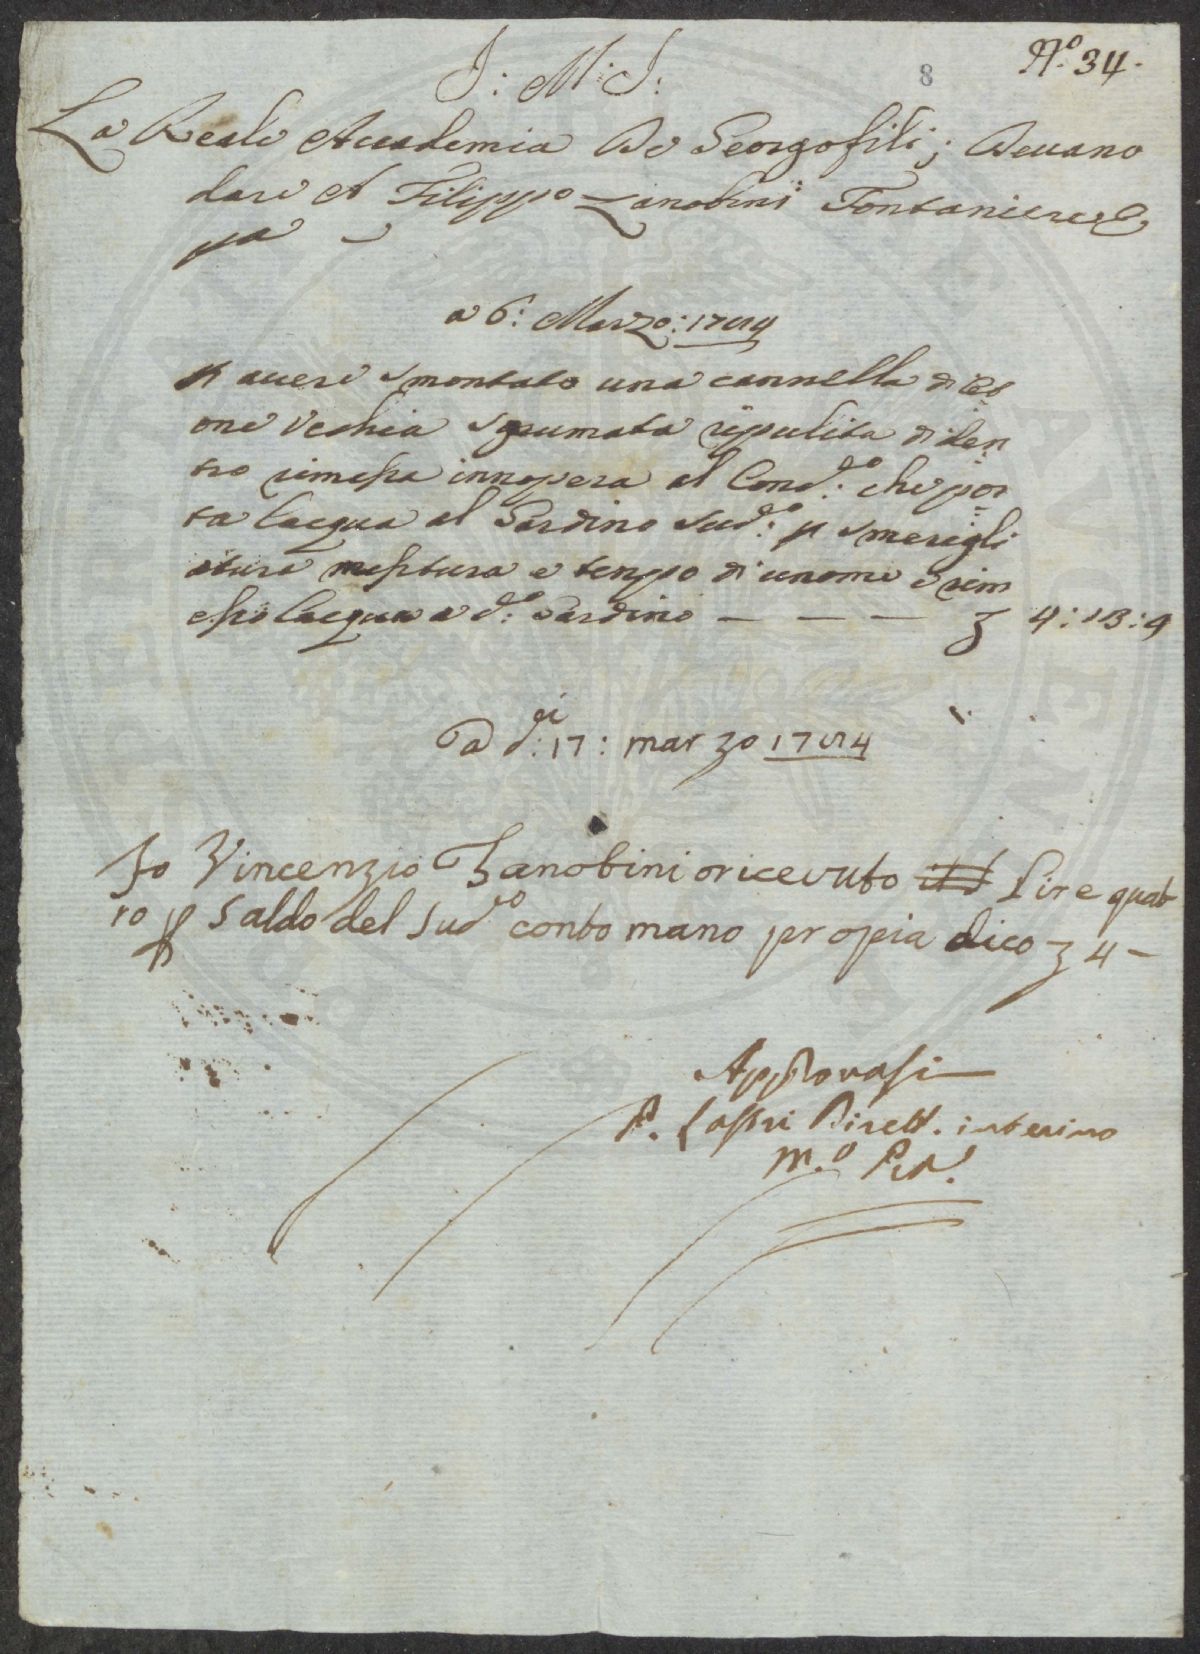 N.º 34.
8
J: M: J:
La Reale Accademia De Georgofili; Devano
dare A Filippo Zanobini Fontaniere e
pa
a 6: Marzo: 1794
p avere smontato una cannella di Ot
one Vechia sgrumata ripulita di den
tro rimessa innopera al Cond.º che por
ta lacqua al Gardino Sud.º p smerigli
atura mestura e tenpo di unomo e rim
esso lacqua a d.º Gardino — — — — 4: 13: 4
A di: 17: marzo 1794
Io Vincenzio Zanobini o ricevuto Lire quat
ro p Saldo del Sud.º conto mano propia dico 4 –
Approvasi
P. Lastri Dirett. interino
m.º p.ª